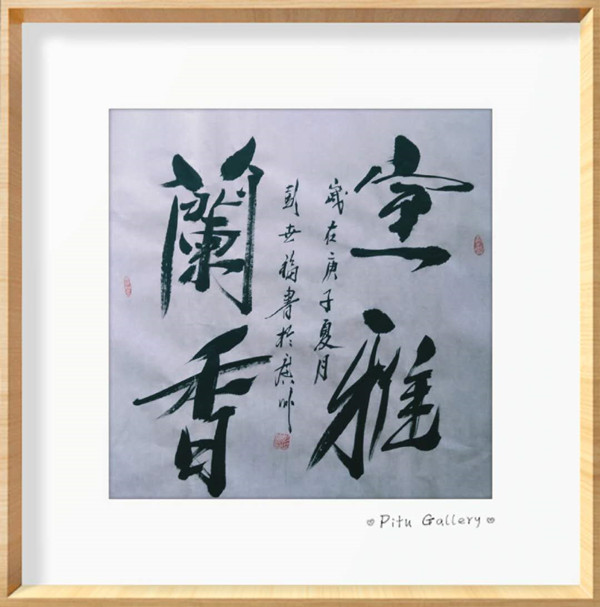 室雅
歲在庚子夏月
彭世福書於廣州
蘭香
Pitu Gallery